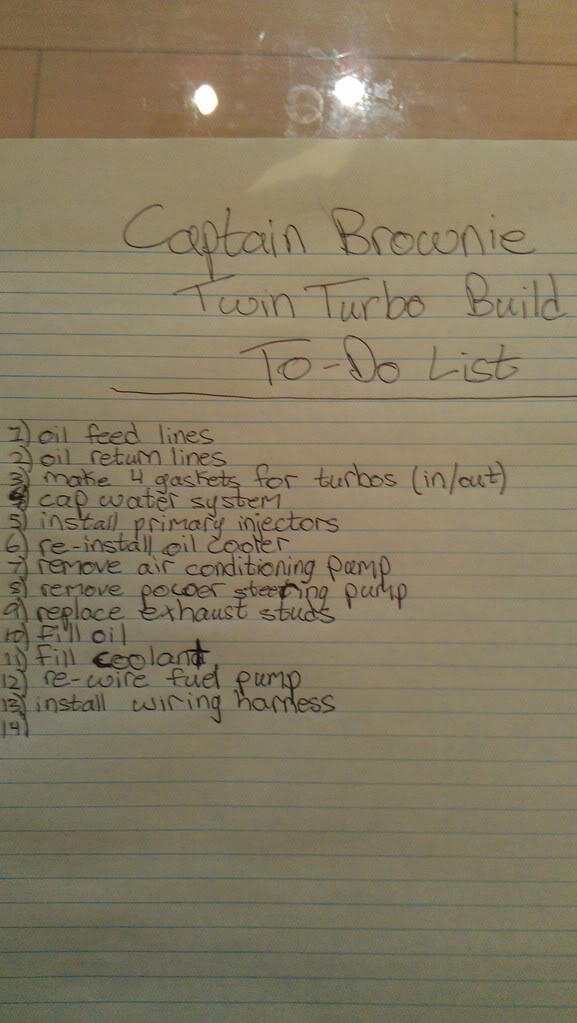 Captain Brownie
Twin Turbo Build
To-Do List
1) oil feed lines
2) oil return lines
3) make 4 gaskets for turbos (in/out)
4) cap water system
5) install primary injectors
6) re-install oil cooler
7) remove air conditioning pump
8) remove power steering pump
9) replace exhaust studs
10) fill oil
11) fill coolant
12) re-wire fuel pump
13) install wiring harness
14)